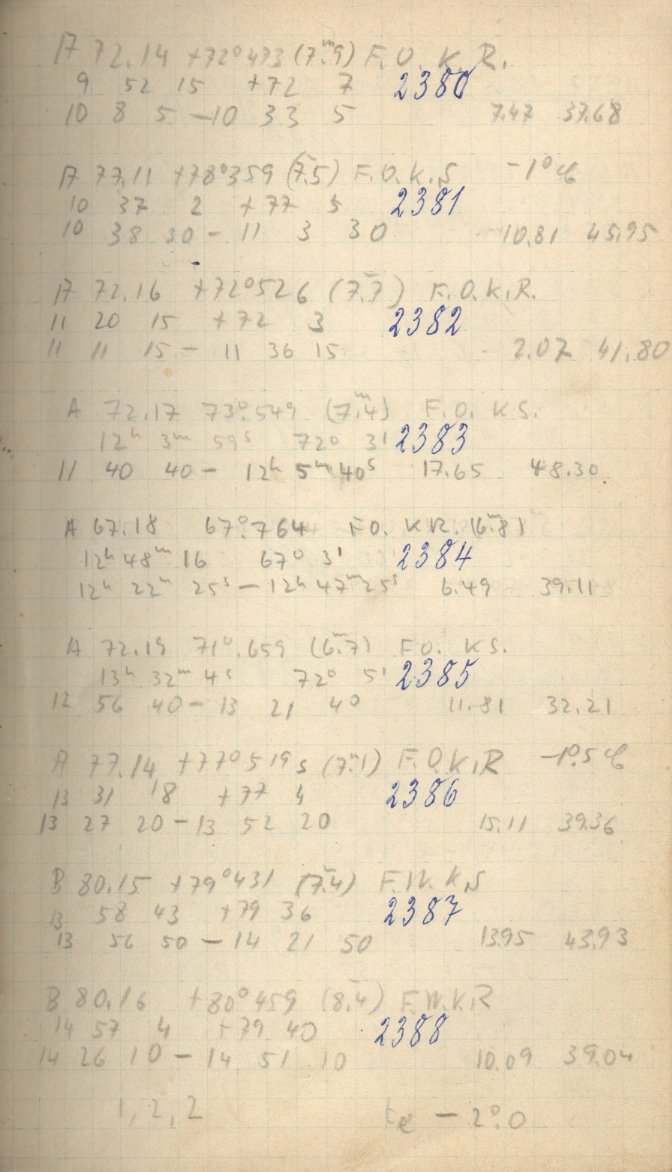 A 72.14 +72°473 (7.ᵐ9) F.O.K.R.
9 52 15 +72 7 2380
10 8 5 – 10 33 5 7.47 37.68
A 77.11 +78°359 (7.5) F.O.K.S -1°C
10 37 2 +77 5 2381
10 38 30 – 11 3 30 10.81 45.95
A 72.16 +72°526 (7.7) F.O.K.R.
11 20 15 +72 3 2382
11 11 15 – 11 36 15 2.07 41.80
A 72.17 73°.549 (7.ᵐ4) F.O. KS.
12ʰ 3ᵐ 59ˢ 72° 3' 2383
11 40 40 – 12ʰ 5ᵐ 40ˢ 17.65 48.30
A 67.18 67°.764 F.O. KR. (6.ᵐ8)
12ʰ 48ᵐ 16 67° 3' 2384
12ʰ 22ᵐ 25ˢ – 12ʰ 47ᵐ 25ˢ 6.49 39.11
A 72.19 71°.659 (6.ᵐ7) F.O. KS.
13ʰ 32ᵐ 4ˢ 72° 5' 2385
12 56 40 – 13 21 40 11.81 32.21
A 77.14 +77°519 (7.ᵐ1) F.O.K.R -1°.5C
13 31 18 +77 4 2386
13 27 20 – 13 52 20 15.11 39.36
B 80.15 +79°431 (7.ᵐ4) F.W.K.S
13 58 43 +79 36 2387
13 56 50 – 14 21 50 13.95 43.93
B 80.16 +80°459 (8.4) F.W.K.R
14 57 4 +79 40 2388
14 26 10 – 14 51 10 10.09 39.04
1, 2, 2 – 2°.0